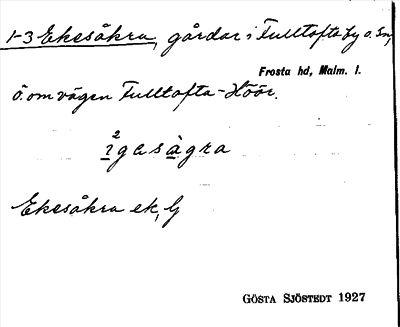 1-3 Ekesåkra, gårdar i Fulltofta by o. sn,
Frosta hd, Malm. l.
ö. om vägen Fulltofta-Höör.
2
ı̱gesàgra
Ekesåkra ek, G
GÖSTA SJÖSTEDT 1927